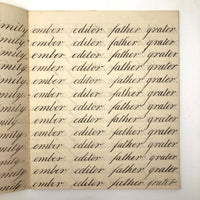 ember editor father grater
ember editor father grater
ember editor father grater
ember editor father grater
ember editor father grater
ember editor father grater
ember editor father grater
ember editor father grater
ember editor father grater
ember editor father grater
ember editor father grater
ember editor father grater
ember editor father grater